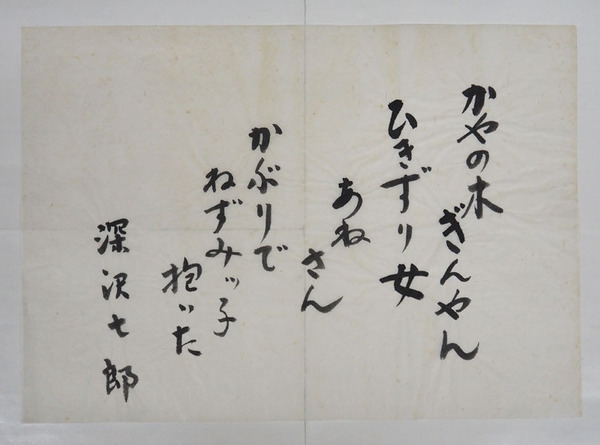 かやの木
ぎんやん
ひきずり女
あね
さん
かぶりで
ねずみッ子
抱いた
深沢七郎